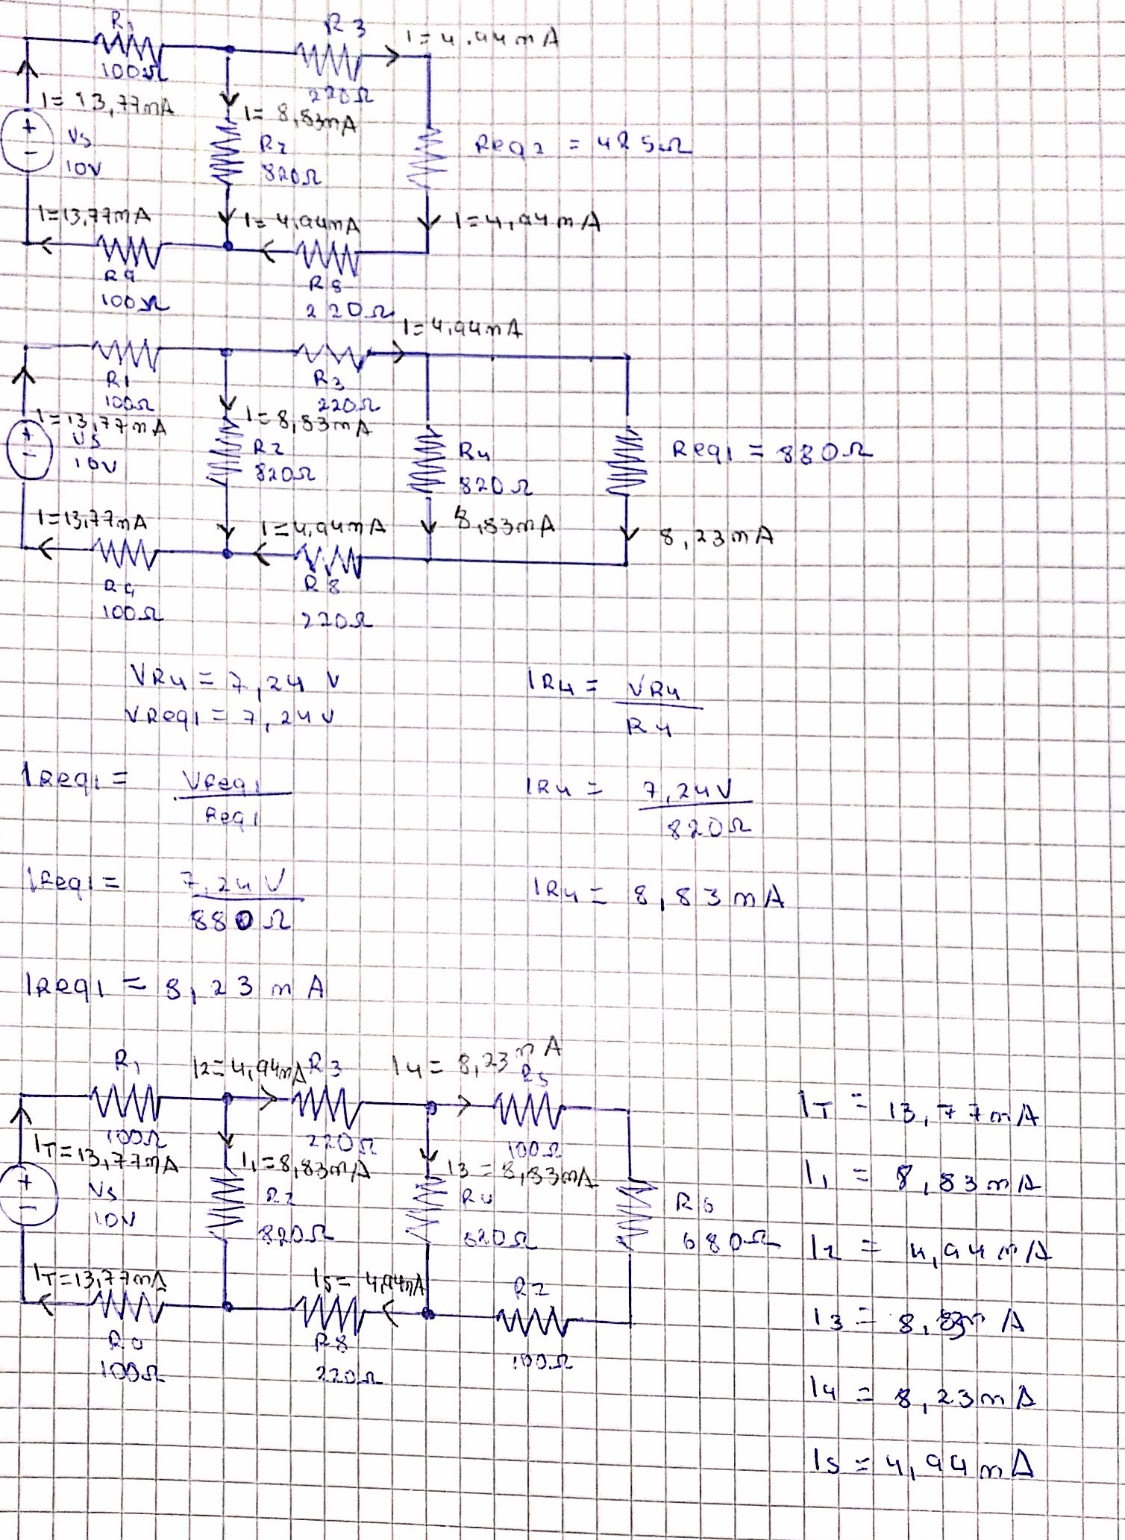 R1
R3
I = 4,94mA
100Ω
220Ω
I = 13,77mA
I = 8,83mA
+
Vs
R2
Req2 = 425Ω
-
10V
820Ω
I=13,77mA
I=4,94mA
I=4,94mA
R9
R8
100Ω
220Ω
I=4,94mA
R1
R3
100Ω
220Ω
I=13,77mA
I=8,83mA
+
Vs
R2
R4
Req1 = 880Ω
-
10V
820Ω
820Ω
I=13,77mA
I=4,94mA
8,83mA
8,23mA
R9
R8
100Ω
220Ω
VR4 = 7,24 V
IR4 = VR4
VReq1 = 7,24V
R4
IReq1 = VReq1
IR4 = 7,24V
Req1
820Ω
IReq1 = 7,24V
IR4 = 8,83mA
880Ω
IReq1 = 8,23mA
R1
I2=4,94mA
R3
I4 = 8,23mA
R5
100Ω
220Ω
100Ω
IT = 13,77mA
IT=13,77mA
I1=8,83mA
I3 = 8,83mA
I1 = 8,83mA
+
Vs
R2
R4
R6
10V
820Ω
820Ω
680Ω
I2 = 4,94mA
-
IT=13,77mA
I5= 4,94mA
R7
I3 = 8,83mA
R9
R8
100Ω
100Ω
220Ω
I4 = 8,23mA
I5 = 4,94mA